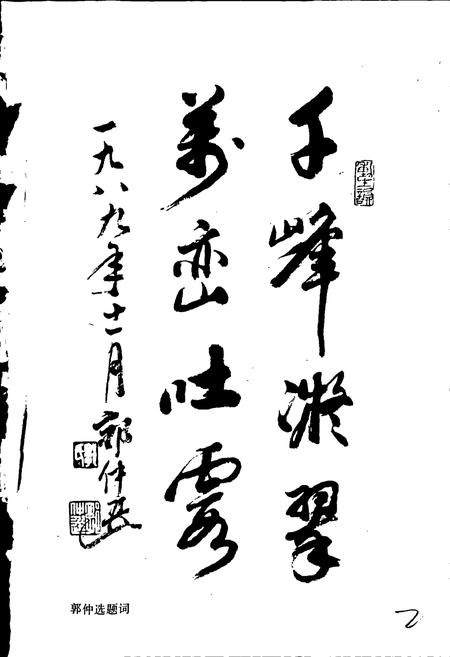 千峰凝翠
萬峦吐霞
一九八九年十一月
郭仲选
郭仲选题词